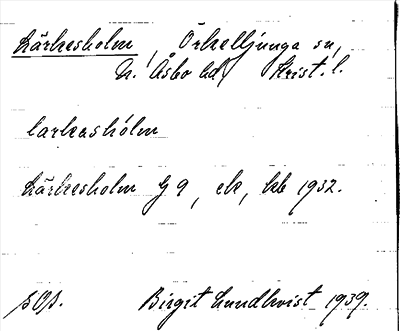 Lärkesholm, Örkelljunga sn,
N. Åsbo hd, Krist. l.
larkashólm
Lärkesholm G 9, ek, kb 1932.
SOS. Birgit Lundkvist 1939.